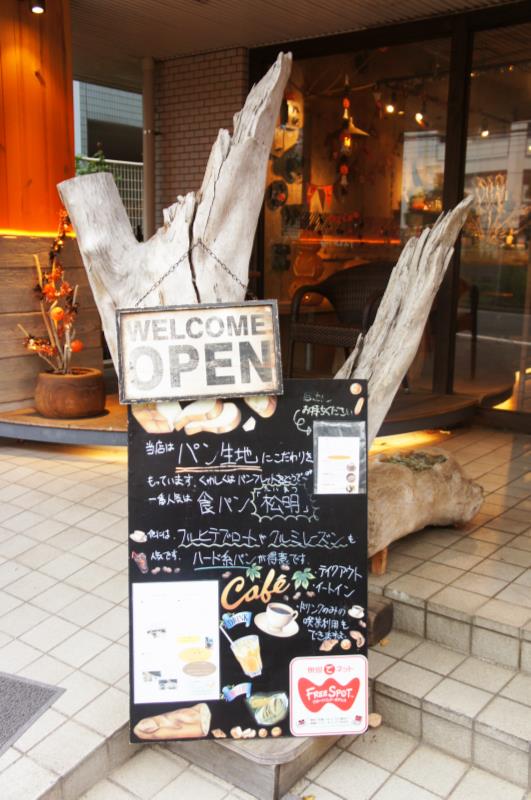 WELCOME
OPEN
お持ちください
当店は パン生地 にこだわりを
もっています。くわしくはパンフレットをどうぞ
一番人気は 食パン「松明」
他には、フルーヒデブロートやクルミレーズンも
人気です。ハード系パンが得意です。
Café
・テイクアウト
・イートイン
・ドリンクのみの
喫茶利用も
できますよ。
DRINK
FREESPOT